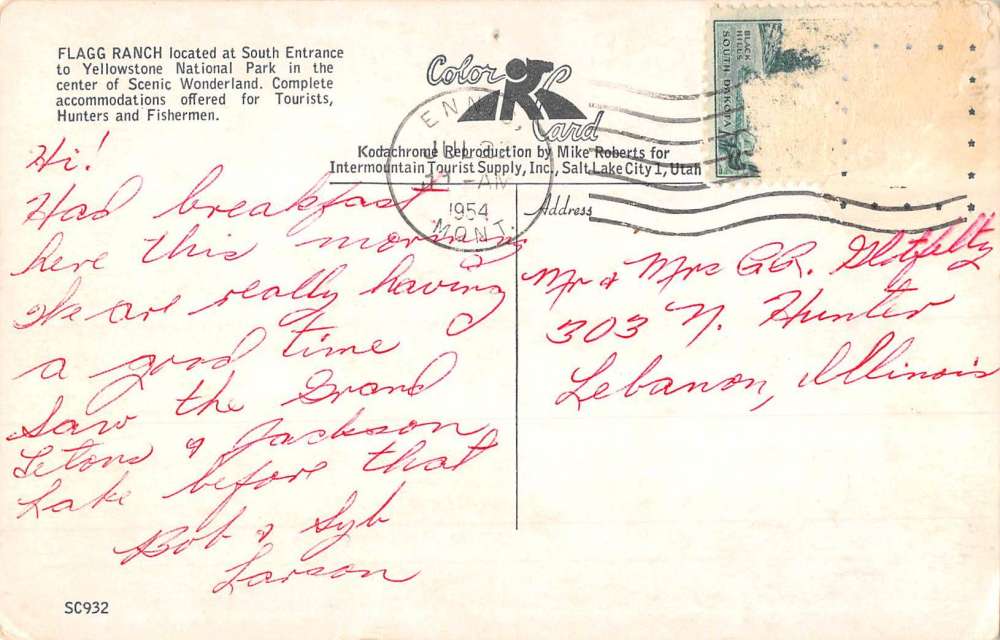 FLAGG RANCH located at South Entrance
to Yellowstone National Park in the
center of Scenic Wonderland. Complete
accommodations offered for Tourists,
Hunters and Fishermen.
Color
Card
Kodachrome Reproduction by Mike Roberts for
Intermountain Tourist Supply, Inc., Salt Lake City 1, Utah
ENNIS,
AM
1954
MONT.
BLACK HILLS
SOUTH DAKOTA
Hi!
Had breakfast
here this morning
We are really having
a good time
Saw the Grand
Tetons & Jackson
Lake before that
Bob & Syb
Larson
Address
Mr & Mrs
303 N. Hunter
Lebanon, Illinois
SC932